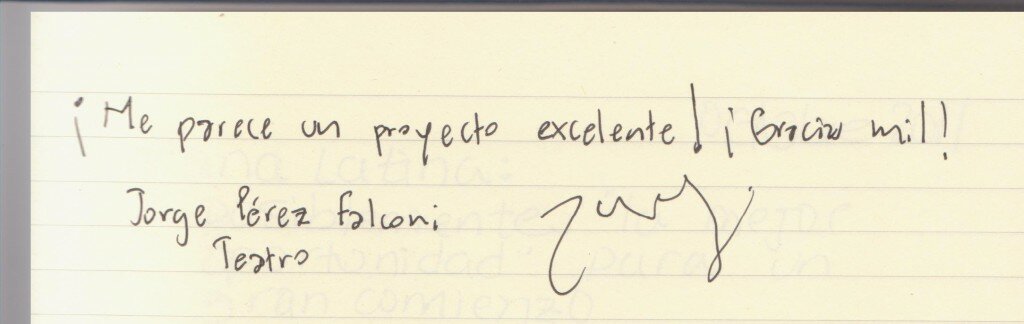 ¡Me parece un proyecto excelente! ¡Gracias mil!
Jorge Pérez Falconi
Teatro